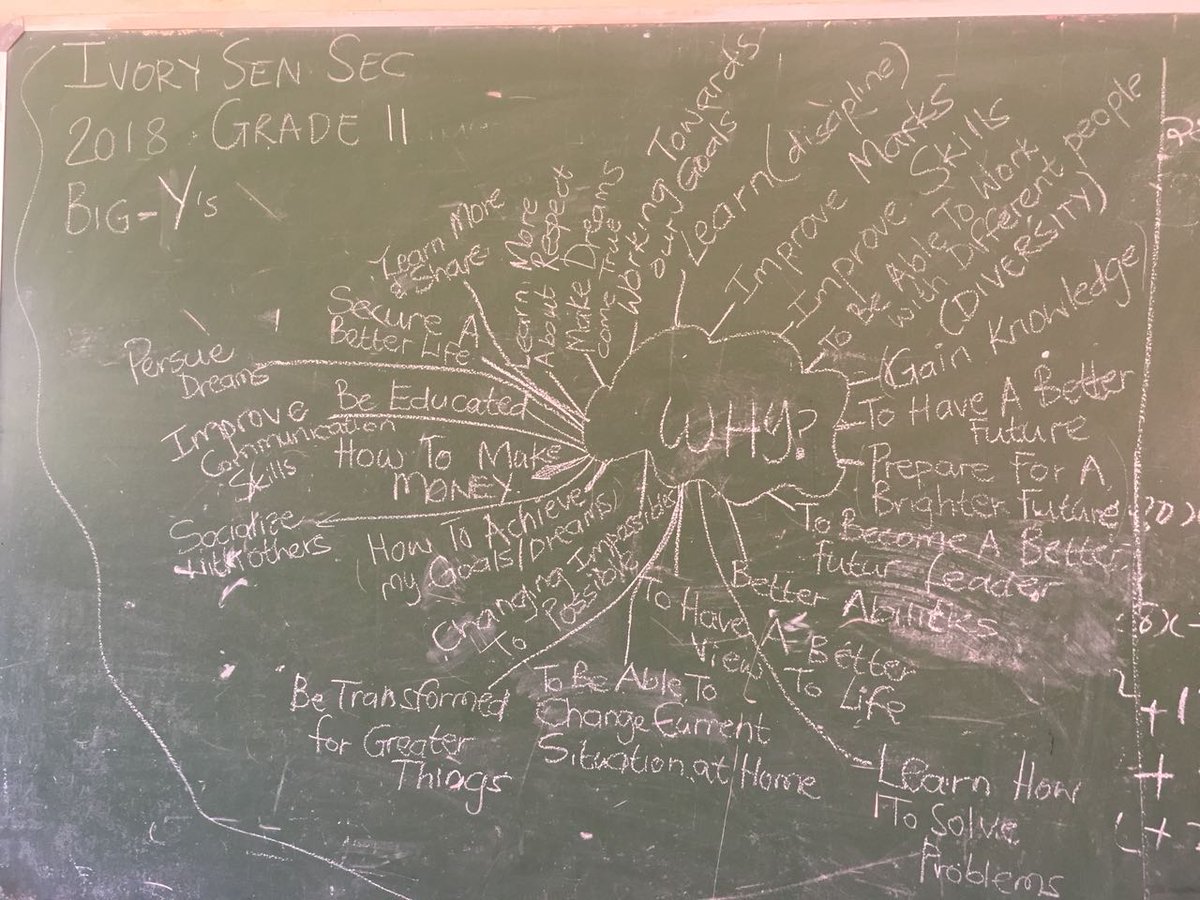 IVORY SEN SEC
2018. GRADE 11
BIG-Y's
WHY?
Learn More
& Share
Learn More
About Respect
Make Dreams
come True
Working Towards
our Goals
Learn (discipline)
Improve Marks
Improve Skills
To Be Able To Work
with Different people
(DIVERSITY)
(Gain Knowledge
To Have A Better
Future
Prepare For A
Brighter Future
To Become A Better
futur Leader
Better
Abilities
To Have A Better
View To Life
Learn How
To Solve
Problems
To Be Able To
Change Current
Situation at Home
Be Transformed
for Greater
Things
Changing Impossible
To Possible
How To Achieve
my Goals/Dreams)
Socialize
with others
How To Make
MONEY
Improve
Communication
Skills
Be Educated
Persue
Dreams
Secure A
Better Life